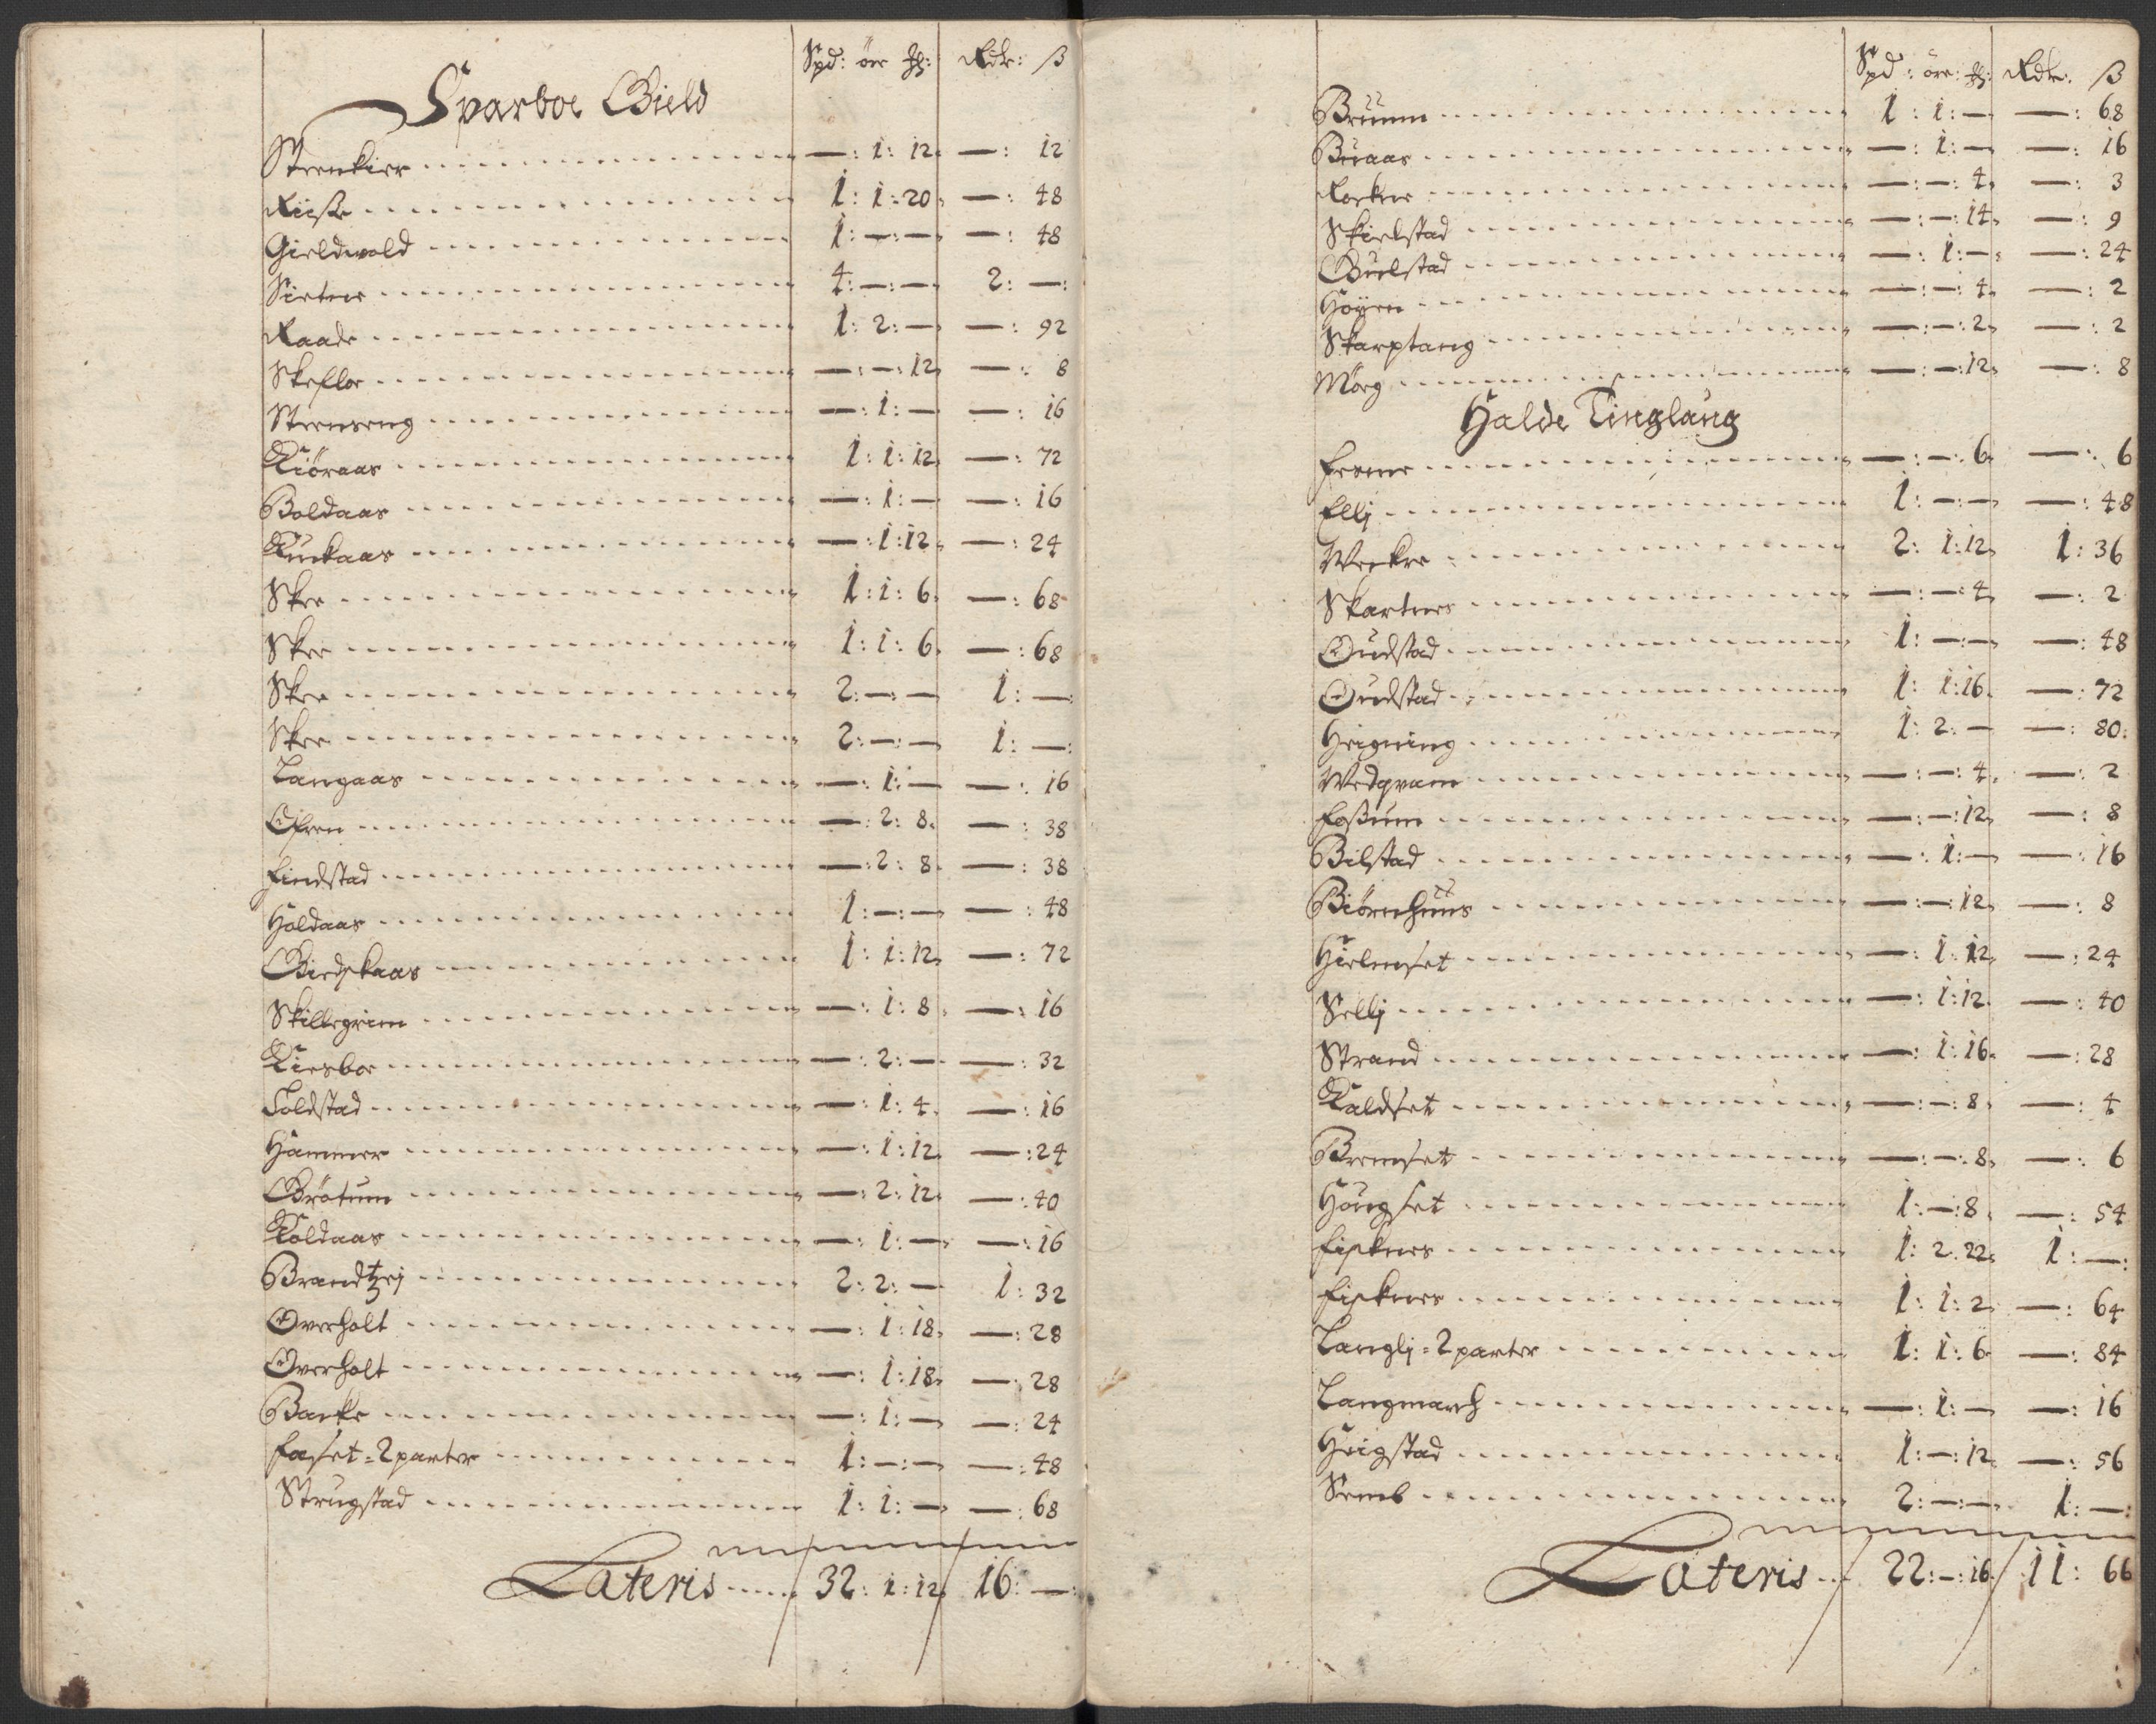 Spd: ör ₰: Rdr: ß
Sparboe Gield
Steenkier —: 1: 12. —: 12
Rüsse 1: 1: 20. —: 48
Gieldwold 1: —: — —: 48
Sietne 4: —: — 2: —:
Raade 1: 2: — —: 92
Skefloe —: —: 12. —: 8
Steenseng —: 1: — —: 16
Kiöraas 1: 1: 12. —: 72
Boldaas —: 1: — —: 16
Kuckaas —: 1: 12. —: 24
Skee 1: 1: 6. —: 68
Skee 1: 1: 6. —: 68
Skee 2: —: — 1: —:
Skee 2: —: — 1: —:
Langaas —: 1: — —: 16
Ofren —: 2: 8. —: 38
Findstad —: 2: 8. —: 38
Holdaas 1: —: — —: 48
Giedskaas 1: 1: 12. —: 72
Skillegrim —: 1: 8. —: 16
Kiesboe —: 2: — —: 32
Toldstad —: 1: 4. —: 16
Hammer —: 1: 12. —: 24
Grötum —: 2: 12. —: 40
Koldaas —: 1: — —: 16
Brandtzej 2: 2: — 1: 32
Overholt —: 1: 18. —: 28
Overholt —: 1: 18. —: 28
Barke —: 1: — —: 24
Foset = 2 parter 1: —: — —: 48
Strugstad 1: 1: — —: 68
Lateris 32: 1: 12. 16: —:
Spd: ör: ₰: Rdr: ß
Bruum 1: 1: — —: 68
Buraas —: 1: — —: 16
Rocknee —: —: 4. —: 3
Skielstad —: —: 14. —: 9
Guulstad —: 1: — —: 24
Höyen —: —: 4. —: 2
Skarptang —: —: 2. —: 2
Mörg —: —: 12. —: 8
Halde Tinglaug
Fosnee —: —: 6. —: 6
Ellj 1: —: — —: 48
Weckre 2: 1: 12. 1: 36
Skartnes —: —: 4. —: 2
Oudstad 1: —: — —: 48
Oudstad 1: 1: 16. —: 72
Hegning 1: 2: — —: 80.
Wedqvam —: —: 4. —: 2
Fossum —: —: 12. —: 8
Bilstad —: 1: — —: 16
Biörnhuus —: —: 12. —: 8
Hielmset —: 1: 12. —: 24
Sellj —: 1: 12. —: 40
Strand —: 1: 16. —: 28
Kaldset —: —: 8. —: 4
Bremset —: —: 8. —: 6
Hougset 1: —: 8. —: 54
Fisknes 1: 2: 22. 1: —:
Fisknes 1: 1: 2. —: 64
Langlj = 2 parter 1: 1: 6. —: 84
Langmarch —: 1: — —: 16
Heigstad 1: —: 12. —: 56
Semb 2: —: — 1: —:
Lateris 22: —: 16. 11: 66